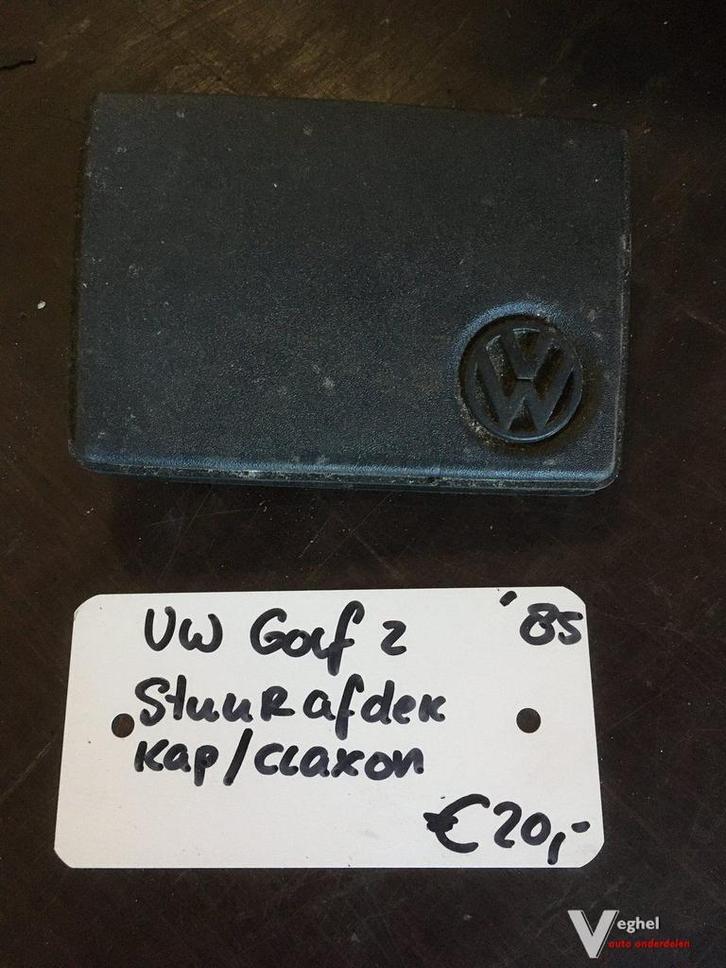 VW Golf 2 '85
Stuur afdek
kap/claxon
€20,-
Veghel
auto onderdelen